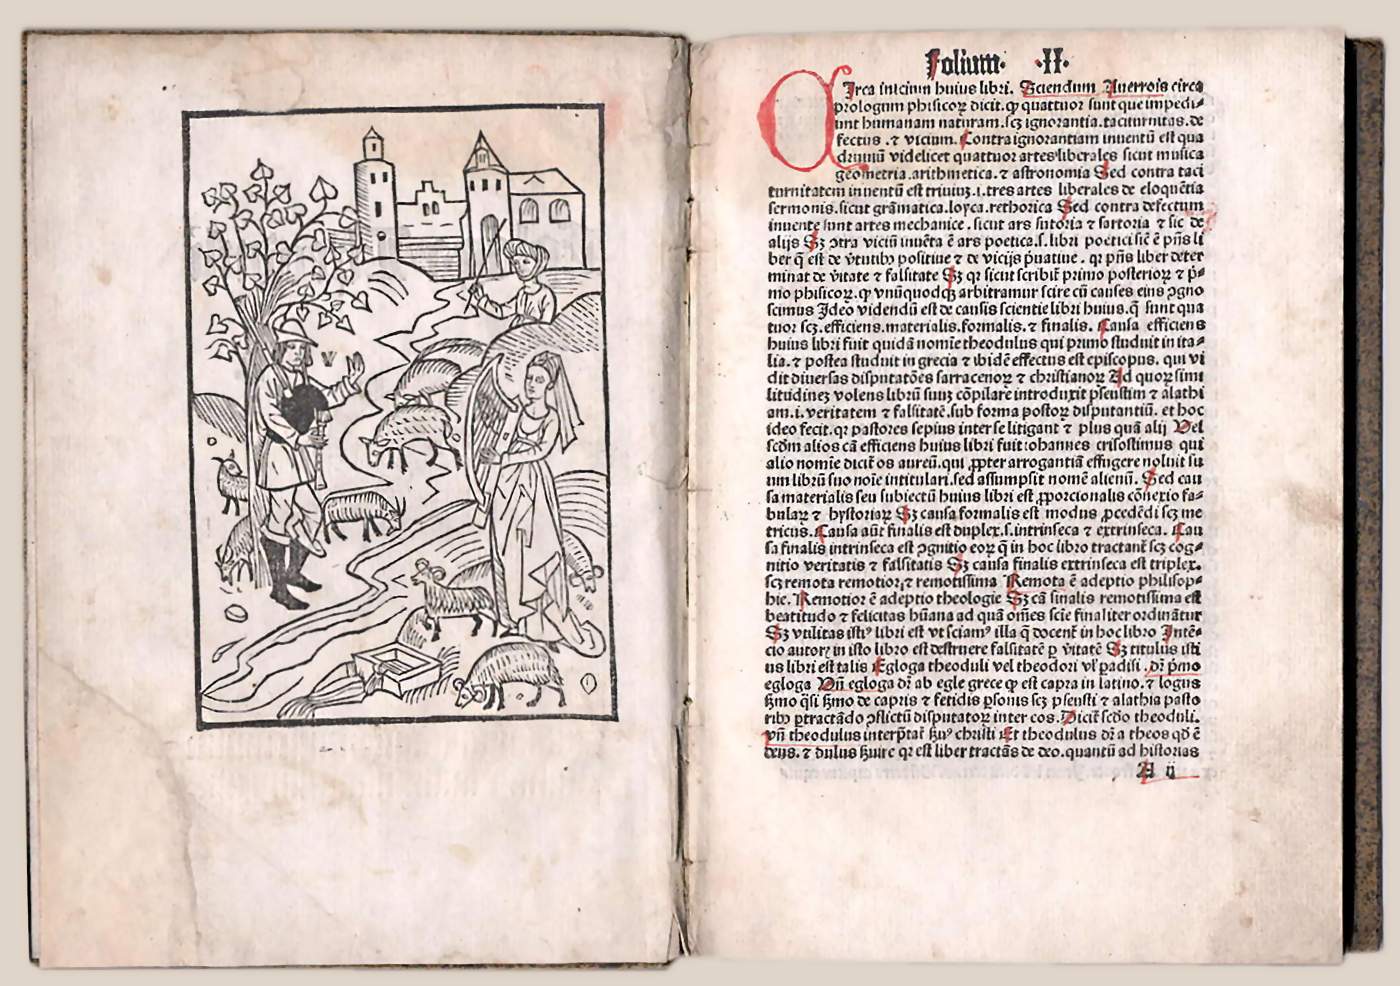 Folium· ·II·
CIrca inicium huius libri. Sciendum Auerrois circa
prologum phisicoꝝ dicit. ꝙ quattuor sunt que impedi⸗
unt humanam naturam. scꝫ ignorantia. taciturnitas. de
fectus. ⁊ vicium. Contra ignorantiam inuentū est qua
druuiū videlicet quattuor artes liberales sicut musica
geometria. arithmetica. ⁊ astronomia Sed contra taci
turnitatem inuentū est triuiuꝫ. i. tres artes liberales de eloquētia
sermonis. sicut grāmatica. loyca. rethorica Sed contra defectum
inuente sunt artes mechanice. sicut ars sutoria ⁊ sartoria ⁊ sic de
alijs Sꝫ ꝯtra viciū inuēta ē ars poetica. s. libri poetici sic ē p̄ns li
ber q̄ est de v̄tutibꝰ positiue ⁊ de vicijs p̄uatiue. qꝛ p̄ns liber deter
minat de v̄itate ⁊ falsitate Sꝫ qꝛ sicut scribit̄ primo posterioꝝ ⁊ p̄⸗
mo phisicoꝝ. ꝙ vnūquodqꝫ arbitramur scire cū causes eius ꝯgno
scimus Ideo videndū est de causis scientie libri huius. q̄ sunt qua
tuor scꝫ. efficiens. materialis. formalis. ⁊ finalis. Causa efficiens
huius libri fuit quidā nomīe theodulus qui primo studuit in ita⸗
lia. ⁊ postea studuit in grecia ⁊ ibidē effectus est episcopus. qui vi
dit diuersas disputatōes sarracenoꝝ ⁊ christianoꝝ Ad quoꝝ simi
litudineꝫ volens librū suuꝫ cōpilare introduxit pseustim ⁊ alathi
am. i. veritatem ⁊ falsitatē. sub forma pastoꝝ disputantiū. et hoc
ideo fecit. qꝛ pastores sepius inter se litigant ⁊ plus quā alij Vel
scd̄m alios cā efficiens huius libri fuit iohannes crisostimus qui
alio nomīe dicit̄ os aureū. qui ꝓpter arrogantiā effugere noluit su
um librū suo noīe intitulari. sed assumpsit nomē alienū. Sed cau
sa materialis seu subiectū huius libri est ꝓporcionalis cōnexio fa⸗
bulaꝝ ⁊ hystoriaꝝ Sꝫ causa formalis est modus ꝓcedēdi scꝫ me
tricus. Causa aūt finalis est duplex. s. intrinseca ⁊ extrinseca. Cau
sa finalis intrinseca est ꝯgnitio eoꝝ q̄ in hoc libro tractant̄ scꝫ cog⸗
nitio veritatis ⁊ falsitatis Sꝫ causa finalis extrinseca est triplex.
scꝫ remota remotioꝛ ⁊ remotissima Remota ē adeptio philisop⸗
hie. Remotior ē adeptio theologie Sꝫ cā finalis remotissima est
beatitudo ⁊ felicitas hūana ad quā oīnes scīe finaliter ordinātur
Sꝫ vtilitas istiꝰ libri est vt sciamꝰ illa q̄ docent̄ in hoc libro Intē⸗
cio autoꝝ in isto libro est destruere falsitatē ꝑ v̄itatē Sꝫ titulus isti
us libri est talis Egloga theoduli vel theodori vl̓ ꝑadisi. dr̄ p̄mo
egloga Vn̄ egloga dr̄ ab egle grece ꝙ est capra in latino. ⁊ logus
ẜmo q̄si ẜmo de capris ⁊ fetidis ꝑsonis scꝫ pseusti ⁊ alathia pasto
ribꝰ ꝑtractādo ꝯflictū disputatoꝝ inter eos. Dicit̄ scd̄o theoduli.
vn̄ theodulus interp̄tat̄ ẜuꝰ christi Et theodulus dr̄ a theos qd̄ ē
deus. ⁊ dulus ẜuire qꝛ est liber tractās de deo. quantū ad historias
A ij